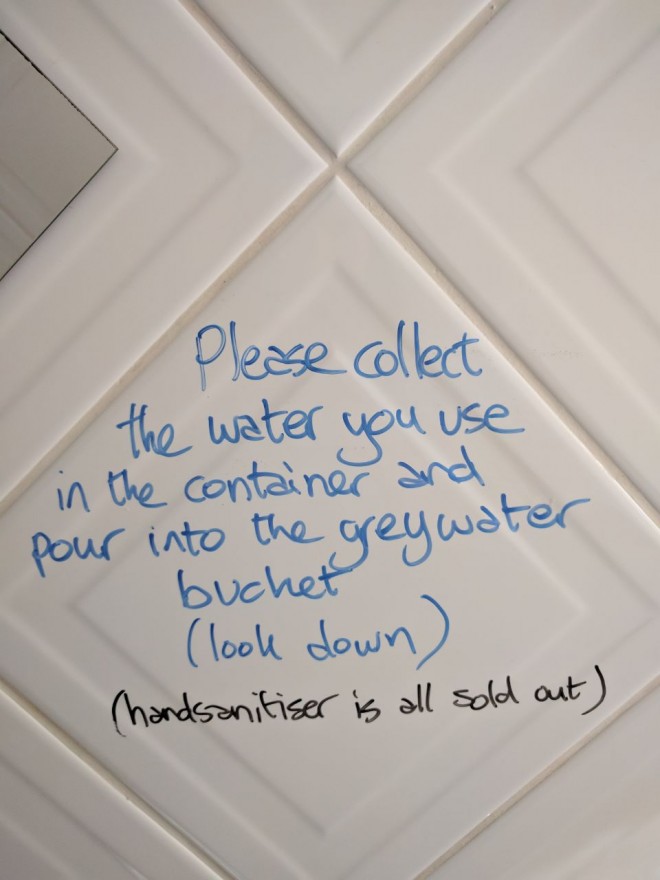 Please collect
the water you use
in the container and
pour into the greywater
bucket
(look down)
(handsanitiser is all sold out)